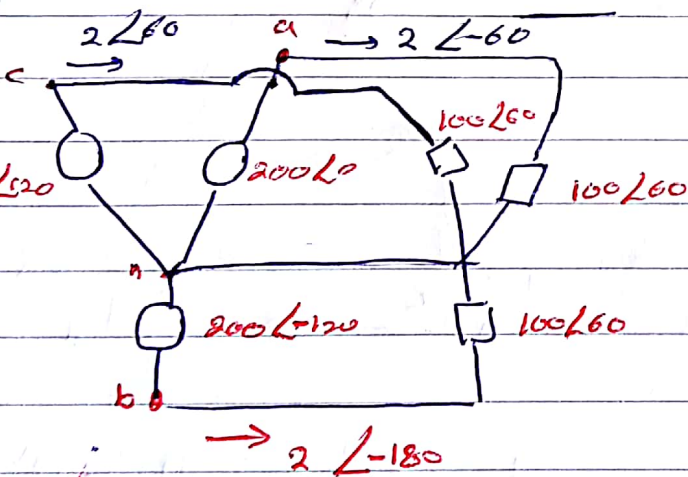 2 ∠60
a
→ 2 ∠-60
c
100∠60
∠120
200∠0
100∠60
n
200∠-120
100∠60
b
→ 2 ∠-180